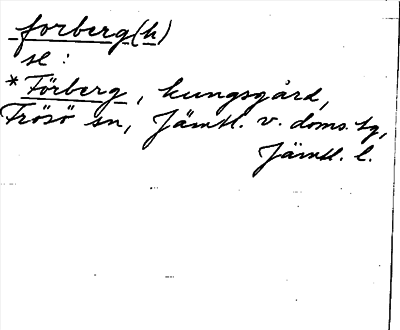 -forberg(h)
se :
*Förberg, kungsgård,
Frösö sn, Jämtl. v. doms. tg,
Jämtl. l.